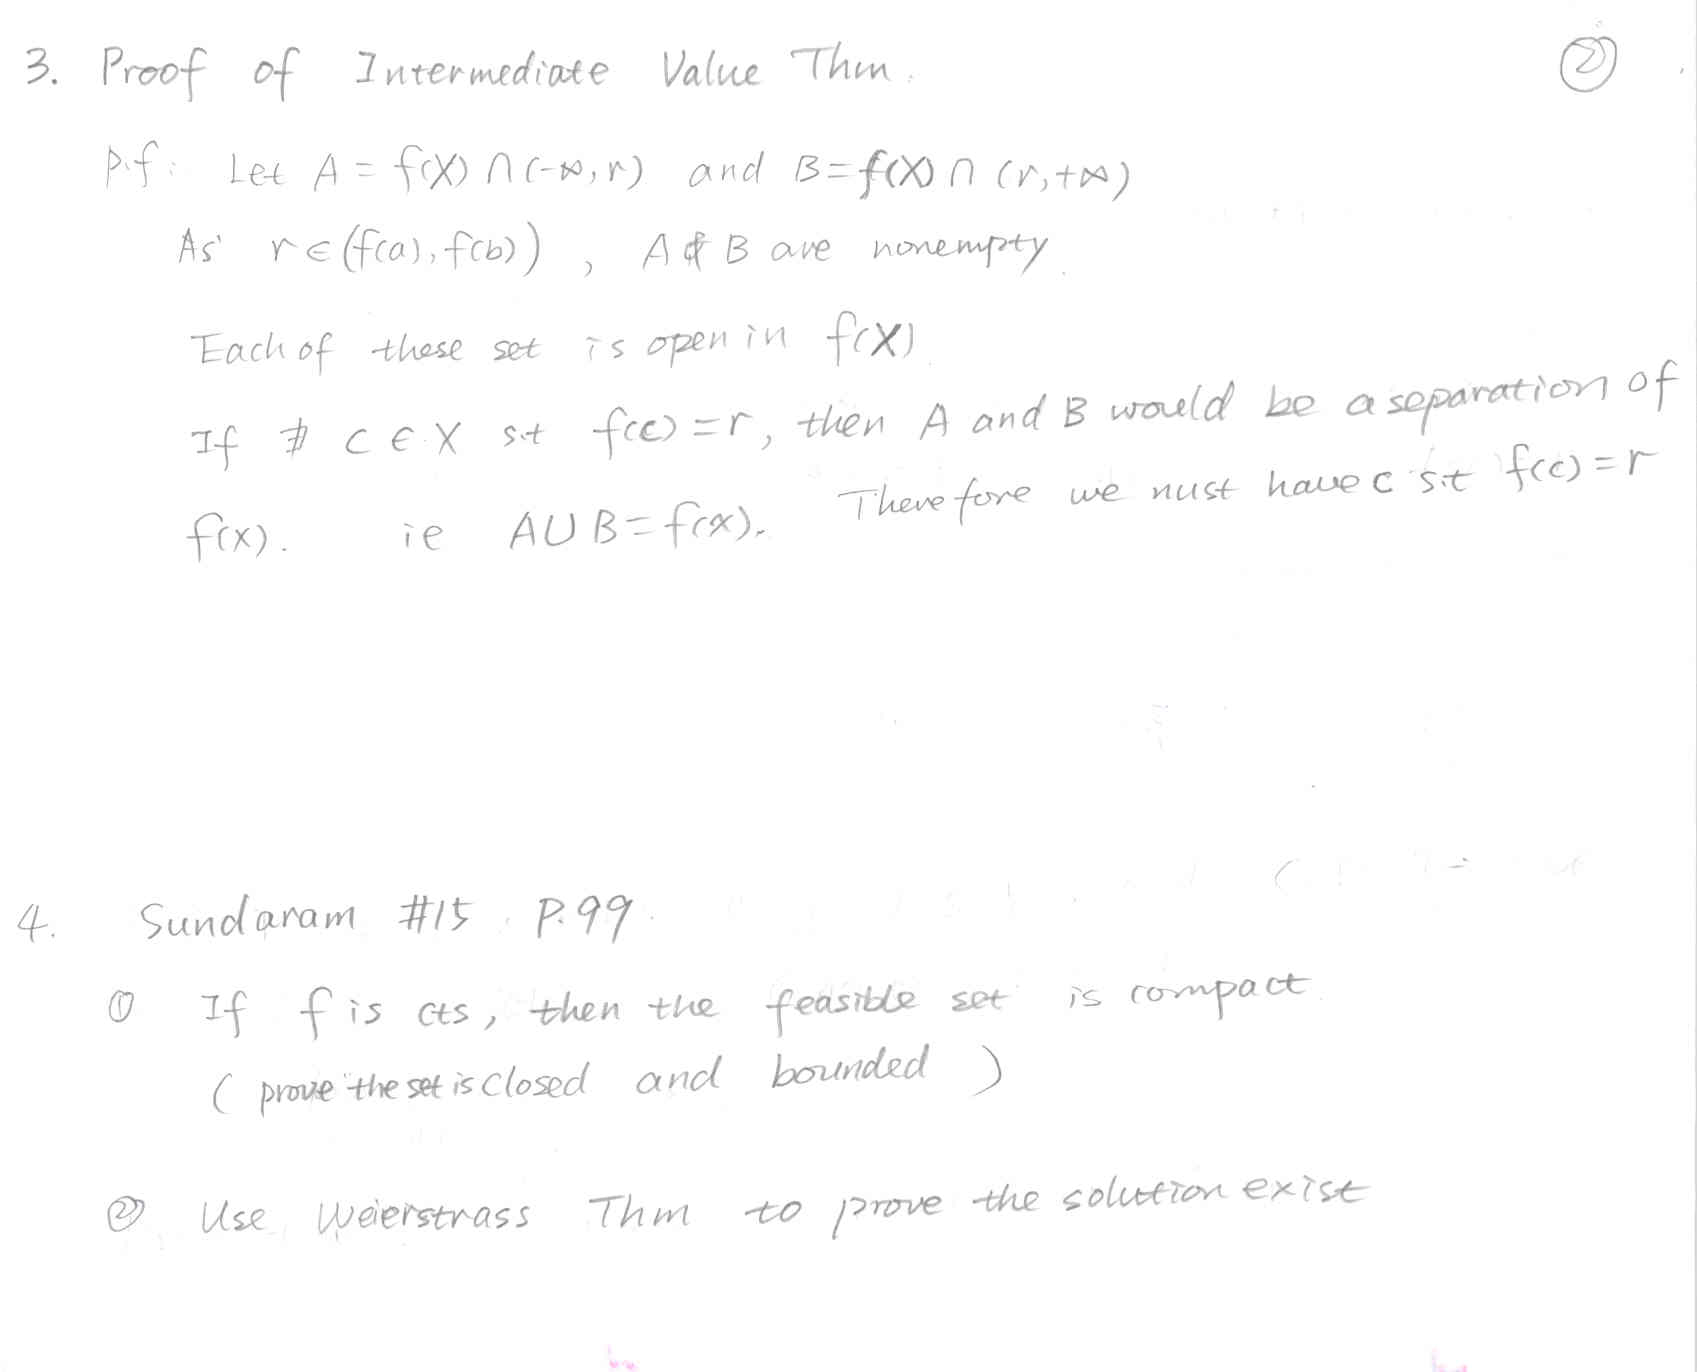 3. Proof of Intermediate Value Thm. ②
p.f: Let A = f(X) ∩ (-∞, r) and B = f(X) ∩ (r, +∞)
As r ∈ (f(a), f(b)), A & B are nonempty.
Each of these set is open in f(X)
If ∄ c ∈ X s.t f(c) = r, then A and B would be a separation of
f(x). ie A∪B = f(x). Therefore we must have c s.t f(c) = r
4. Sundaram #15 P.99.
① If f is cts, then the feasible set is compact
( prove the set is closed and bounded )
② Use Weierstrass Thm to prove the solution exist